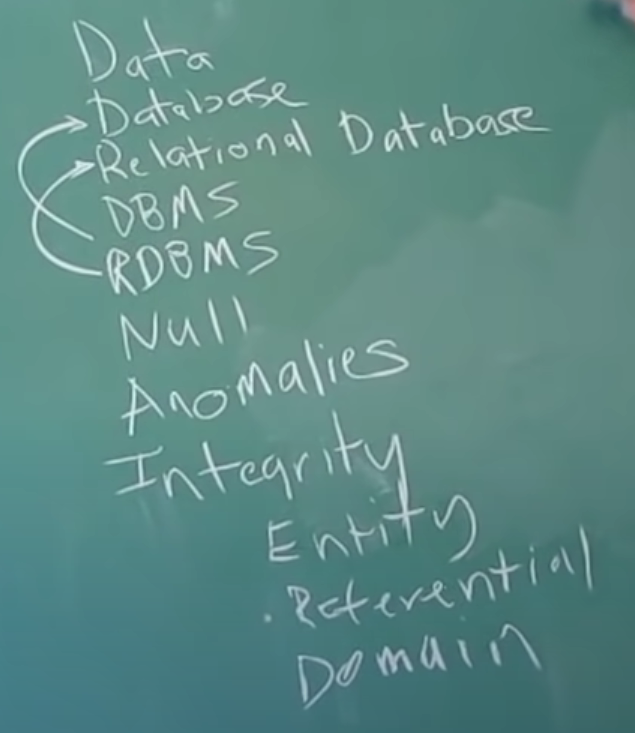 Data
Database
Relational Database
DBMS
RDBMS
Null
Anomalies
Integrity
Entity
Referential
Domain